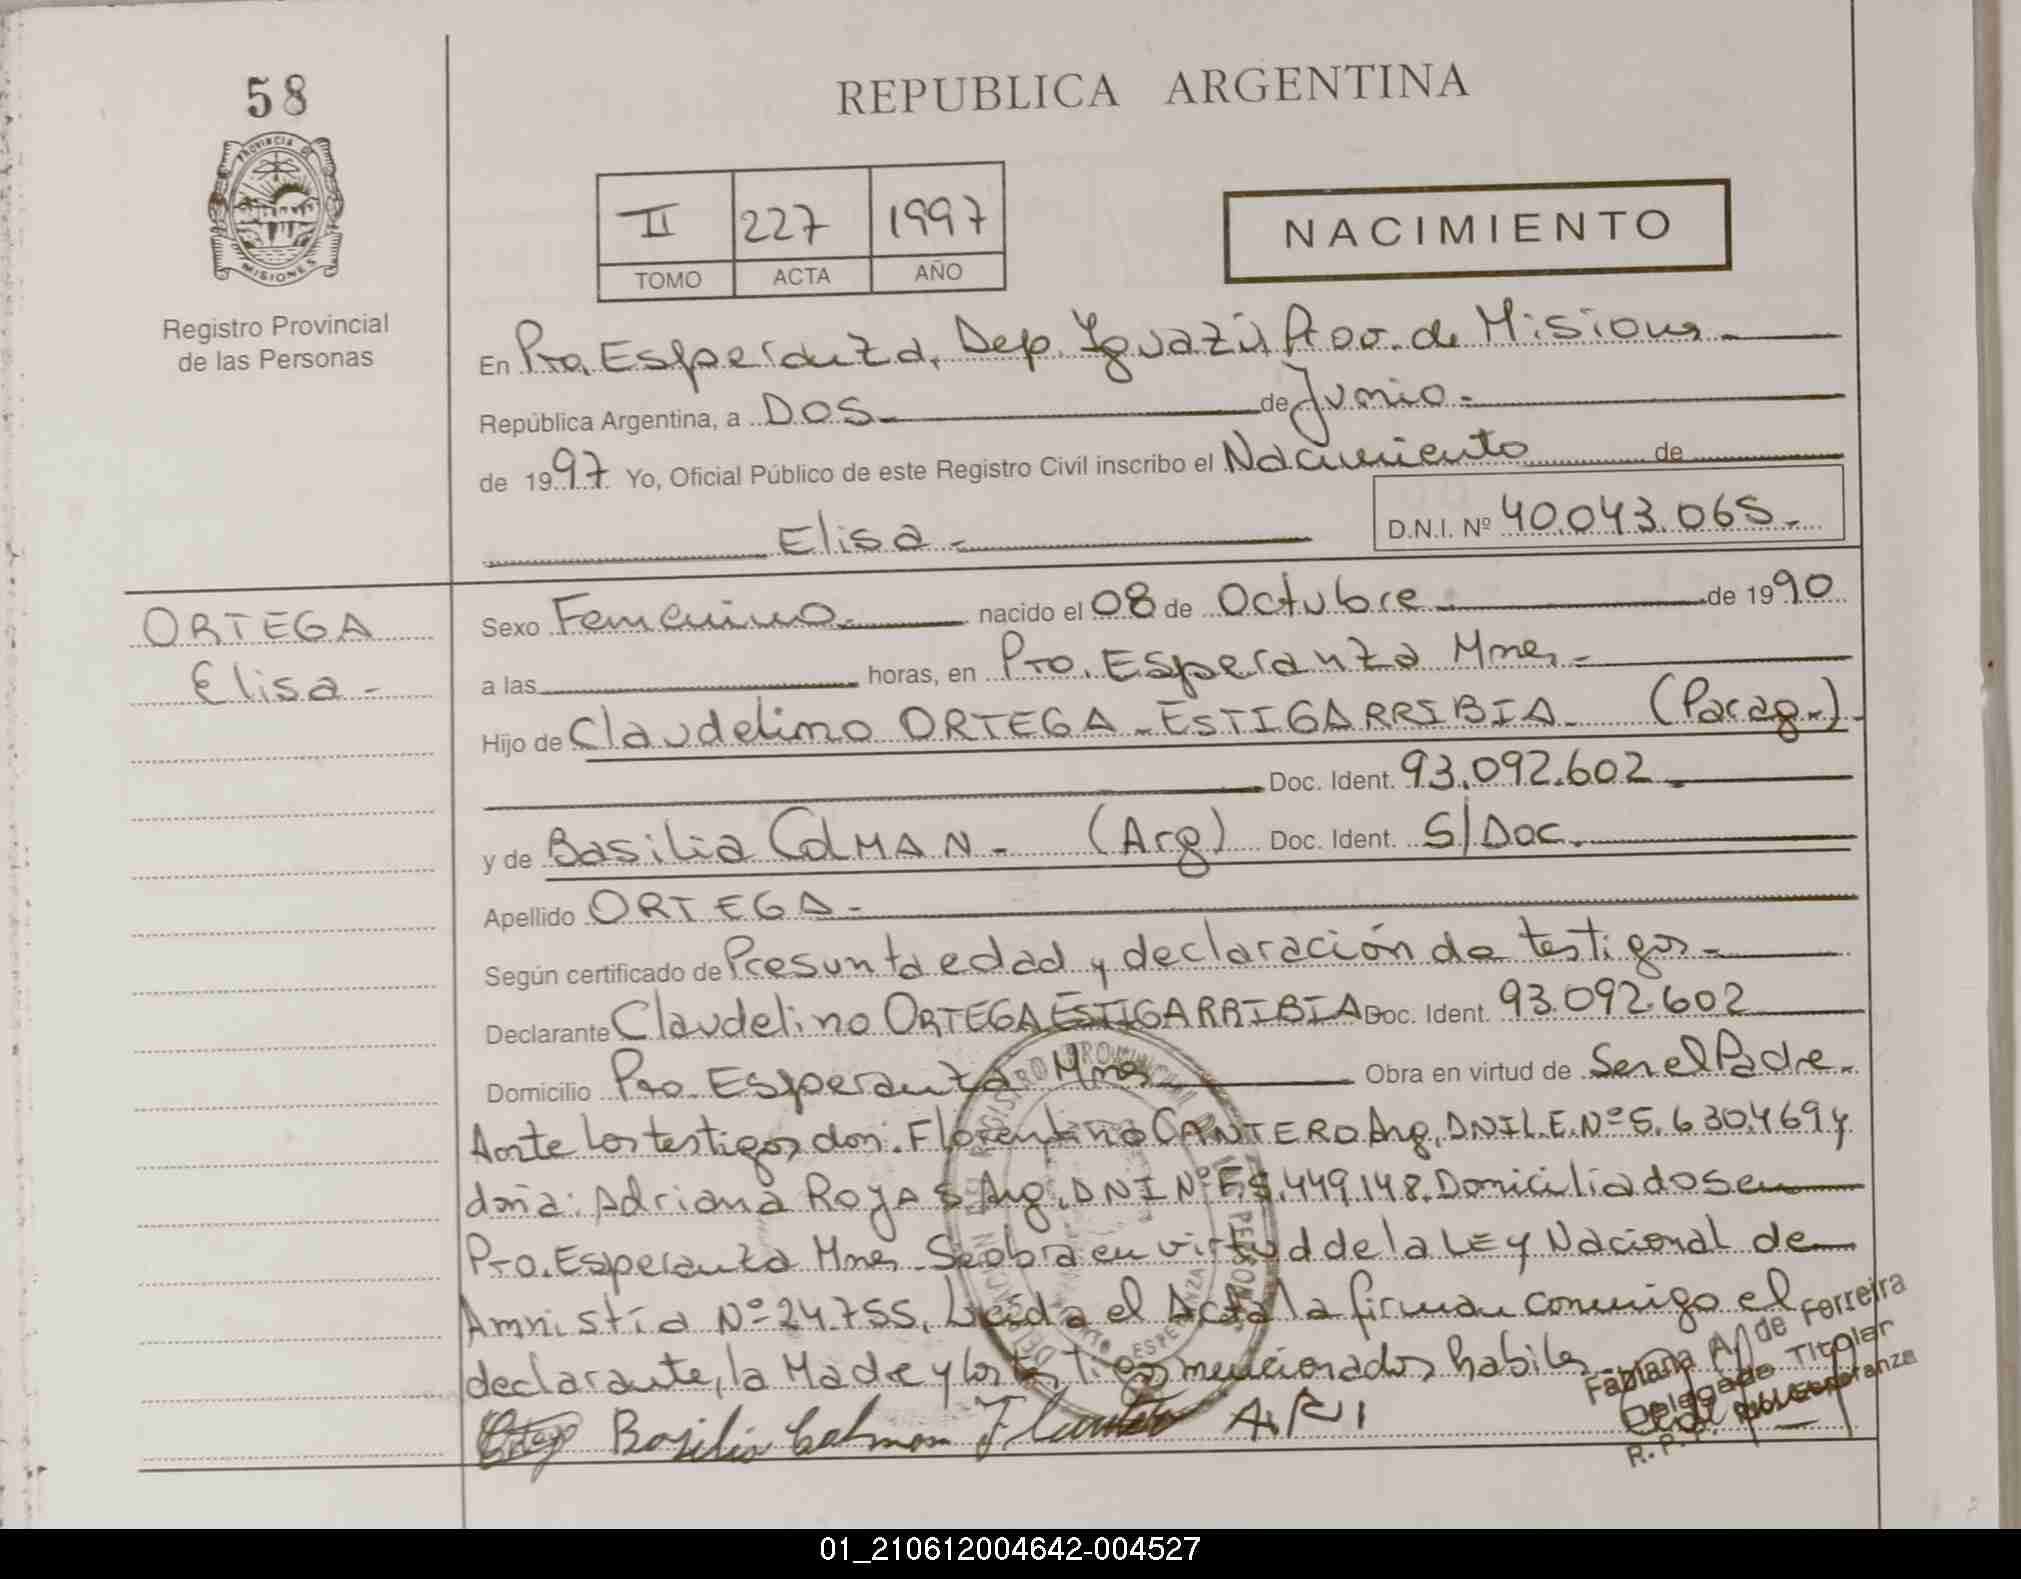 58
REPUBLICA ARGENTINA
PROVINCIA DE
MISIONES
Registro Provincial
de las Personas
II 227 1997
TOMO ACTA AÑO
NACIMIENTO
En Pto. Esperanza, Dep. Iguazú, Prov. de Misiones
República Argentina, a DOS de Junio
de 1997 Yo, Oficial Público de este Registro Civil inscribo el Nacimiento de
Elisa D.N.I. Nº 40.043.065
ORTEGA
Elisa
Sexo Femenino nacido el 08 de Octubre de 1990
a las horas, en Pto. Esperanza Mnes.
Hijo de Claudelino ORTEGA - ESTIGARRIBIA (Parag.)
Doc. Ident. 93.092.602
y de Basilia COLMAN (Arg) Doc. Ident. S/Doc.
Apellido ORTEGA
Según certificado de Presunta edad y declaración de testigos
Declarante Claudelino ORTEGA ESTIGARRIBIA Doc. Ident. 93.092.602
Domicilio Pto. Esperanza Mnes Obra en virtud de Ser el Padre
Ante los testigos don: Florentino CANTERO Arg, DNI L.E. Nº 5.630.469 y
doña: Adriana ROJAS Arg, DNI Nº F.5.449.148. Domiciliados en
Pto. Esperanza Mnes. Se obra en virtud de la LEY Nacional de
Amnistía Nº 24.755, Leída el Acta la firman conmigo el
declarante, la Madre y los testigos mencionados habiles
Ortega Basilia Colman F Cantero A.R
Fabiana A. de Ferreira
Delegado Titular
01_210612004642-004527